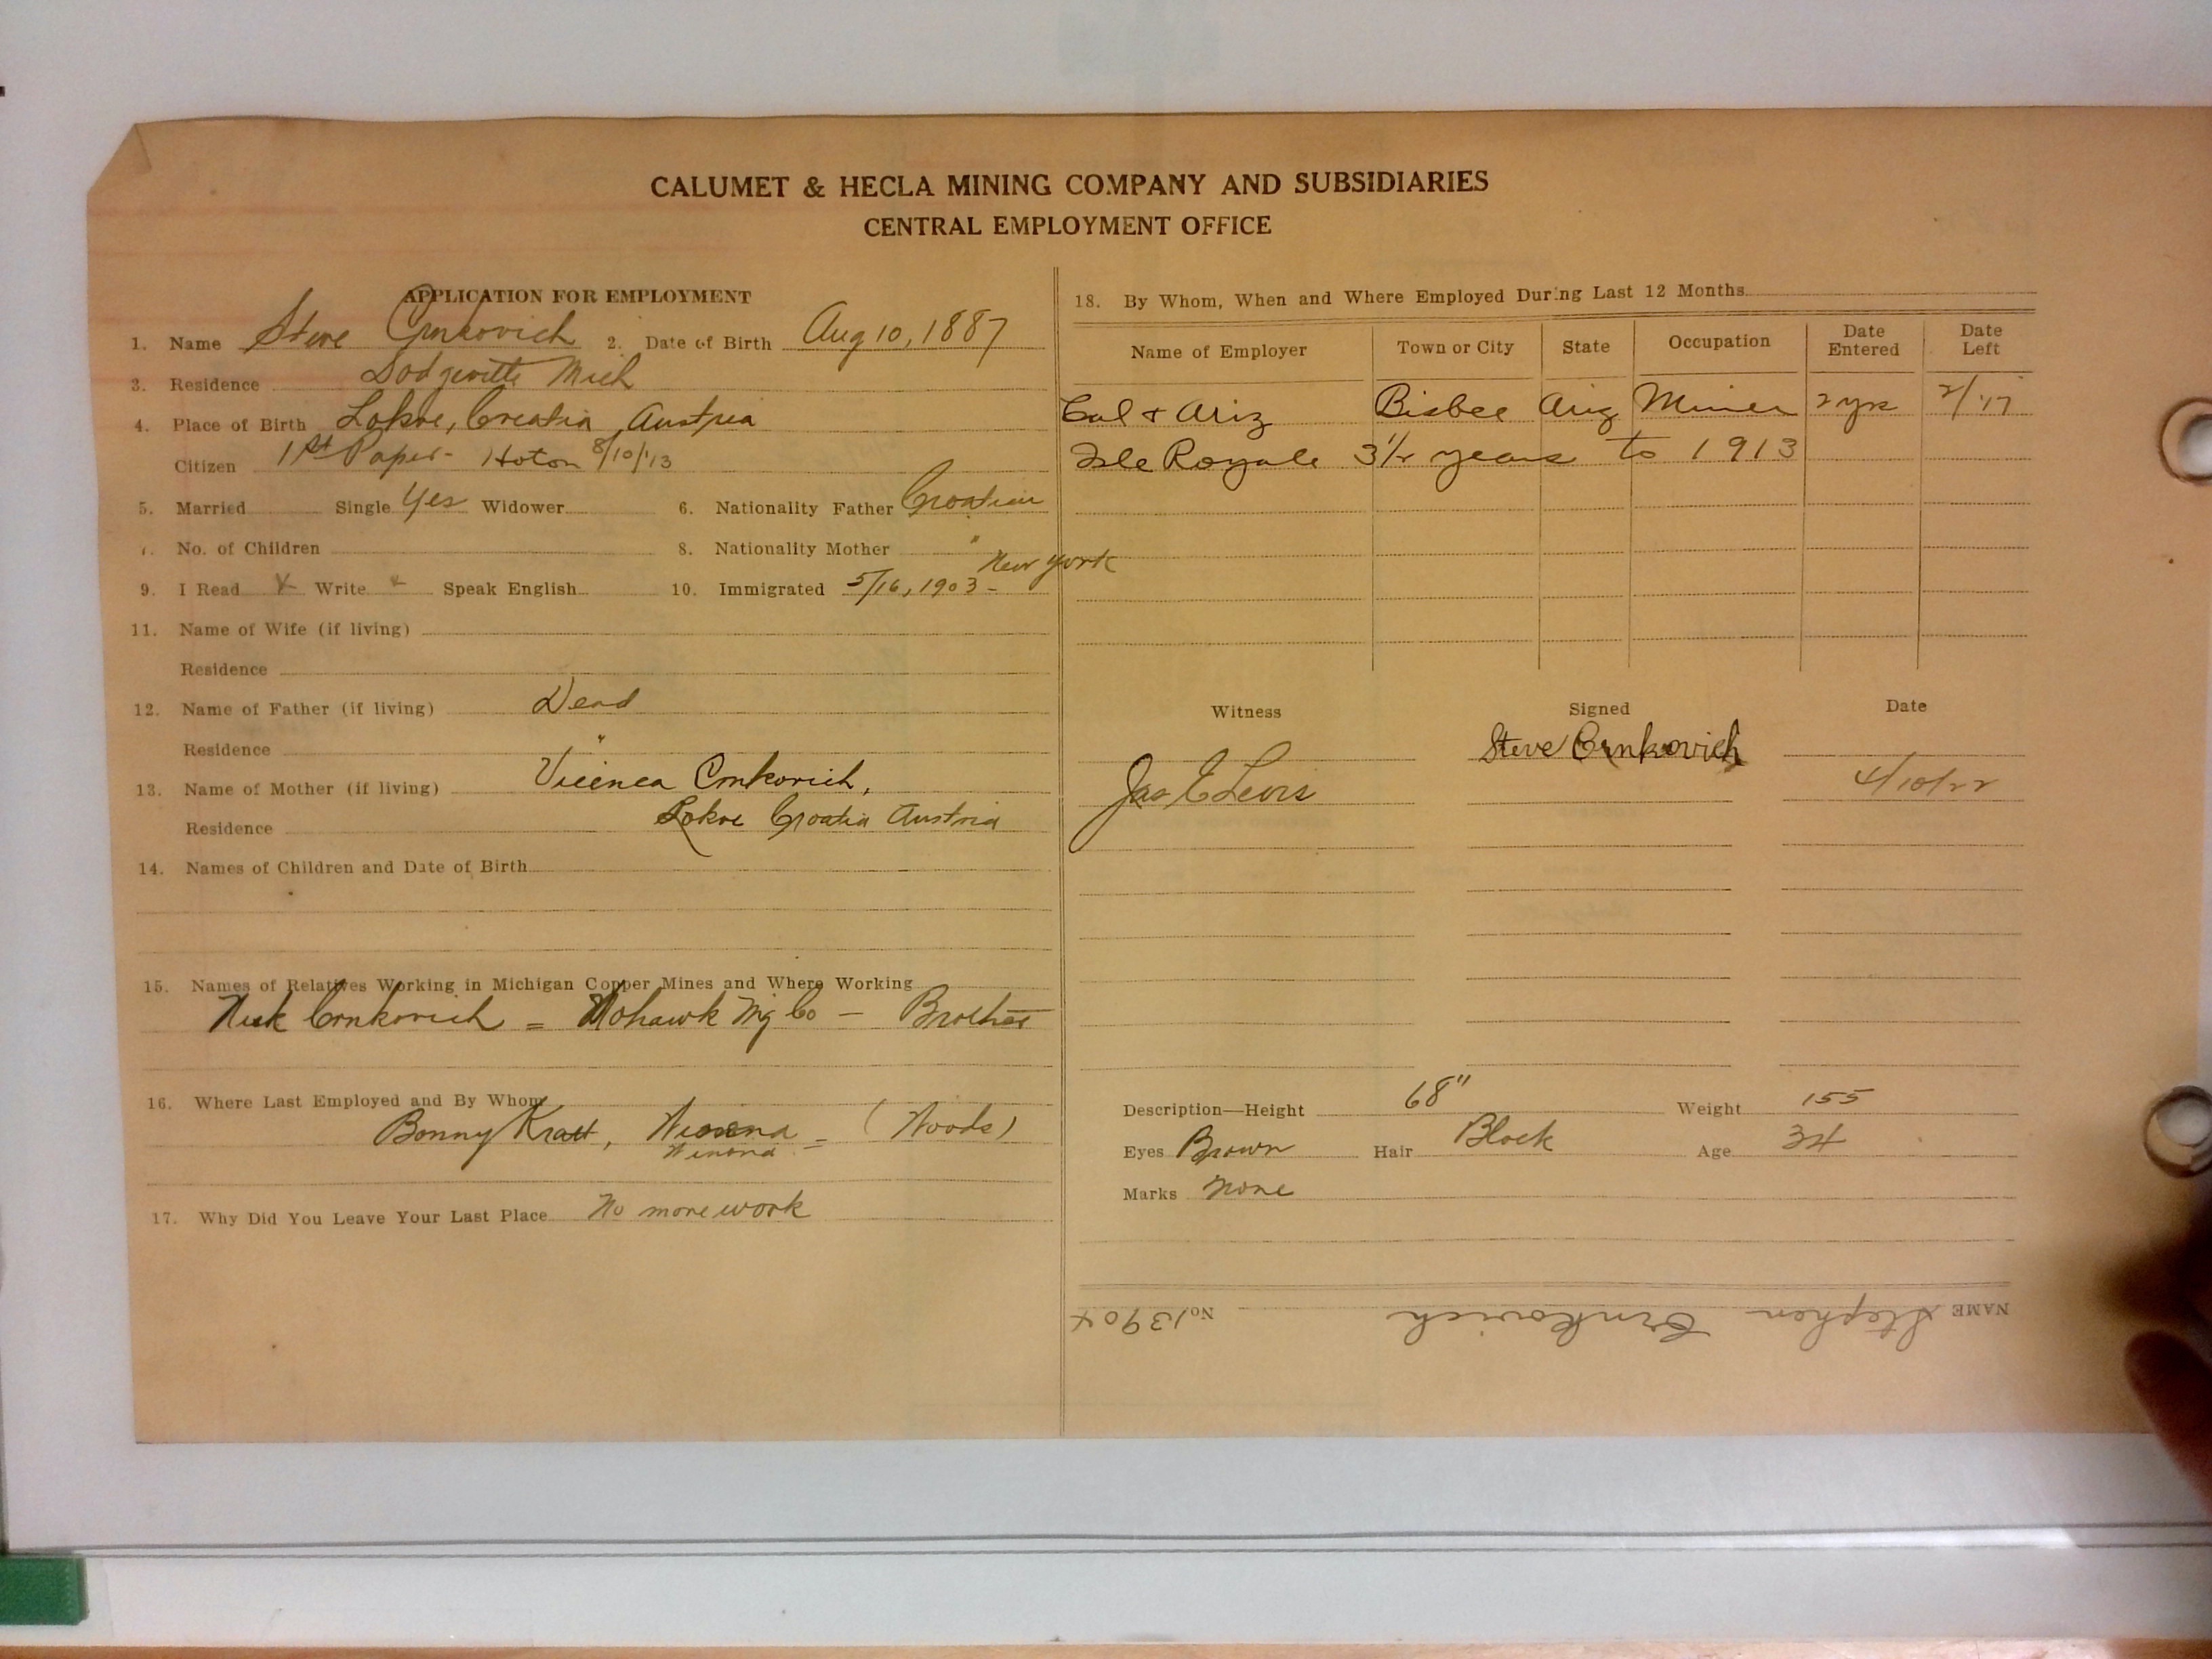 CALUMET & HECLA MINING COMPANY AND SUBSIDIARIES
CENTRAL EMPLOYMENT OFFICE
APPLICATION FOR EMPLOYMENT
1. Name Steve Crnkovich 2. Date of Birth Aug 10, 1887
3. Residence Dodgeville Mich
4. Place of Birth Lokve, Croatia Austria
Citizen 1st Paper - Hoton 8/10/13
5. Married Single Yes Widower 6. Nationality Father Croatian
7. No. of Children 8. Nationality Mother "
9. I Read X Write X Speak English 10. Immigrated 5/16, 1903 - New York
11. Name of Wife (if living)
Residence
12. Name of Father (if living) Dead
Residence "
13. Name of Mother (if living) Crnkovich,
Residence Lokve Croatia Austria
14. Names of Children and Date of Birth
15. Names of Relatives Working in Michigan Copper Mines and Where Working
Nick Crnkovich = Mohawk Mg Co - Brother
16. Where Last Employed and By Whom
Bonny Kratt, Winona - (Woods)
Winona -
17. Why Did You Leave Your Last Place No more work
18. By Whom, When and Where Employed During Last 12 Months
Name of Employer Town or City State Occupation Date Entered Date Left
Cal & Ariz Bisbee Ariz Miner 2 yrs 2/'17
Isle Royale 3 1/2 years to 1913
Witness Signed Date
Steve Crnkovich
Jas C Lewis 4/10/22
Description—Height 68" Weight 155
Eyes Brown Hair Black Age 34
Marks None
NAME Stephen Crnkovich No 13904